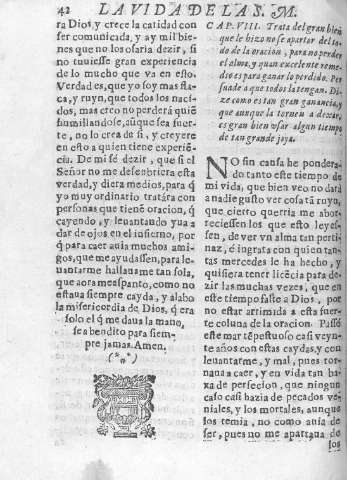 42 LA VIDA DE LA S. M.
ra Dios, y crece la caridad con
ser comunicada, y ay mil bie-
nes que no los osaria dezir, si
no tuuiesse gran experiencia
de lo mucho que va en esto.
Verdad es, que yo soy mas fla-
ca, y ruyn, que todos los naci-
dos, mas creo no perderà quiē
humillandose, aũque sea fuer-
te, no lo crea de si, y creyere
en esto a quien tiene experiē-
cia. De mi sé dezir, que si el
Señor no me descubriera esta
verdad, y diera medios, para q̃
yo muy ordinario tratára con
personas que tienē oracion, q̃
cayendo, y leuantando yua a
dar de ojos en el infierno, por
q̃ para caer auia muchos ami-
gos, que me ayudassen, para le-
uantarme hallauame tan sola,
que aora me espanto, como no
estaua siempre cayda, y alabo
la misericordia de Dios, q̃ era
solo el q̃ me daua la mano,
sea bendito para siem-
pre jamas. Amen.
(*⁎*)
CAP. VIII. Trata del gran bien
que le hizo no se apartar del to-
do de la oracion, para no perder
el alma, y quan excelente reme-
dio es para ganar lo perdido. Per
suade a que todos la tengan. Di-
ze como es tan gran ganancia, y
que aunque la torneu a dexar,
es gran bien vsar algun tiempo
de tan grande joya.
NO sin causa he pondera-
do tanto este tiempo de
mi vida, que bien veo no darà
a nadie gusto ver cosa tã ruyn,
que cierto querria me abor-
reciessen los que esto leyes-
sen, de ver vn alma tan perti-
naz, e ingrata con quien tan-
tas mercedes le ha hecho, y
quisiera tener licēcia para de-
zir las muchas vezes, que en
este tiempo faltè a Dios, por
no estar arrimada a esta fuer-
te coluna de la oracion. Passè
este mar tēpestuoso casi veyn-
te años con estas caydas, y con
leuantarme, y mal, pues tor-
naua a caer, y en vida tan ba-
xa de perfecion, que ningun
caso casi hazia de pecados ve-
niales, y los mortales, aunque
los temia, no como auia de
ser, pues no me apartaua de
los